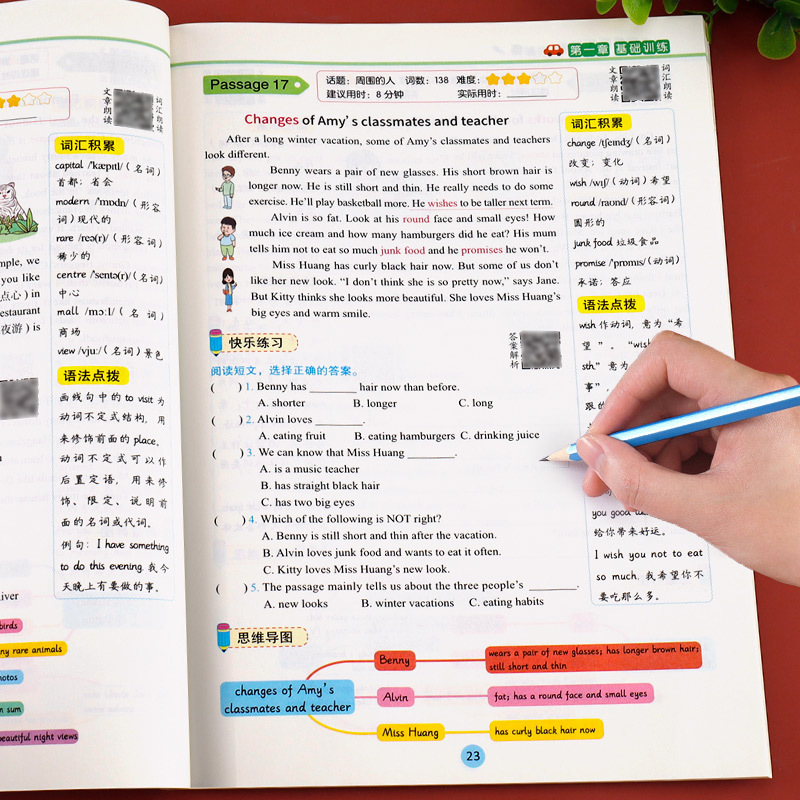 文章朗读
词汇朗读
词汇积累
capital /'kæpɪtl/(名词)
首都；省会
modern /'mɒdn/(形容
词)现代的
rare /reə(r)/(形容词)
稀少的
centre /'sentə(r)/(名词)
中心
mall /mɔːl/(名词)
商场
view /vjuː/(名词)景色
语法点拨
画线句中的 to visit 为
动词不定式结构，用
来修饰前面的 place。
动词不定式可以作
后置定语，用来修
饰、限定、说明前
面的名词或代词。
例句：I have something
to do this evening. 我今
天晚上有要做的事。
mple, we
you like
点心) in
restaurant
夜游) is
iver
birds
ny rare animals
hotos
n sum
beautiful night views
第一章 基础训练
Passage 17
话题：周围的人 词数：138 难度：
建议用时：8 分钟 实际用时：
文章朗读
词汇朗读
Changes of Amy's classmates and teacher
After a long winter vacation, some of Amy's classmates and teachers
look different.
Benny wears a pair of new glasses. His short brown hair is
longer now. He is still short and thin. He really needs to do some
exercise. He'll play basketball more. He wishes to be taller next term.
Alvin is so fat. Look at his round face and small eyes! How
much ice cream and how many hamburgers did he eat? His mum
tells him not to eat so much junk food and he promises he won't.
Miss Huang has curly black hair now. But some of us don't
like her new look. "I don't think she is so pretty now," says Jane.
But Kitty thinks she looks more beautiful. She loves Miss Huang's
big eyes and warm smile.
快乐练习
答案解析
阅读短文，选择正确的答案。
( ) 1. Benny has ________ hair now than before.
A. shorter B. longer C. long
( ) 2. Alvin loves ________.
A. eating fruit B. eating hamburgers C. drinking juice
( ) 3. We can know that Miss Huang ________.
A. is a music teacher
B. has straight black hair
C. has two big eyes
( ) 4. Which of the following is NOT right?
A. Benny is still short and thin after the vacation.
B. Alvin loves junk food and wants to eat it often.
C. Kitty loves Miss Huang's new look.
( ) 5. The passage mainly tells us about the three people's ________.
A. new looks B. winter vacations C. eating habits
思维导图
changes of Amy's
classmates and teacher
Benny
wears a pair of new glasses; has longer brown hair;
still short and thin
Alvin
fat; has a round face and small eyes
Miss Huang
has curly black hair now
23
词汇积累
change /tʃeɪndʒ/(名词)
改变；变化
wish /wɪʃ/(动词)希望
round /raʊnd/(形容词)
圆形的
junk food 垃圾食品
promise /'prɒmɪs/(动词)
承诺；答应
语法点拨
wish 作动词，意为“希
望”。“wish
sth.” 意为
事”，
跟的
you good
给你带来好运。
I wish you not to eat
so much. 我希望你不
要吃那么多。